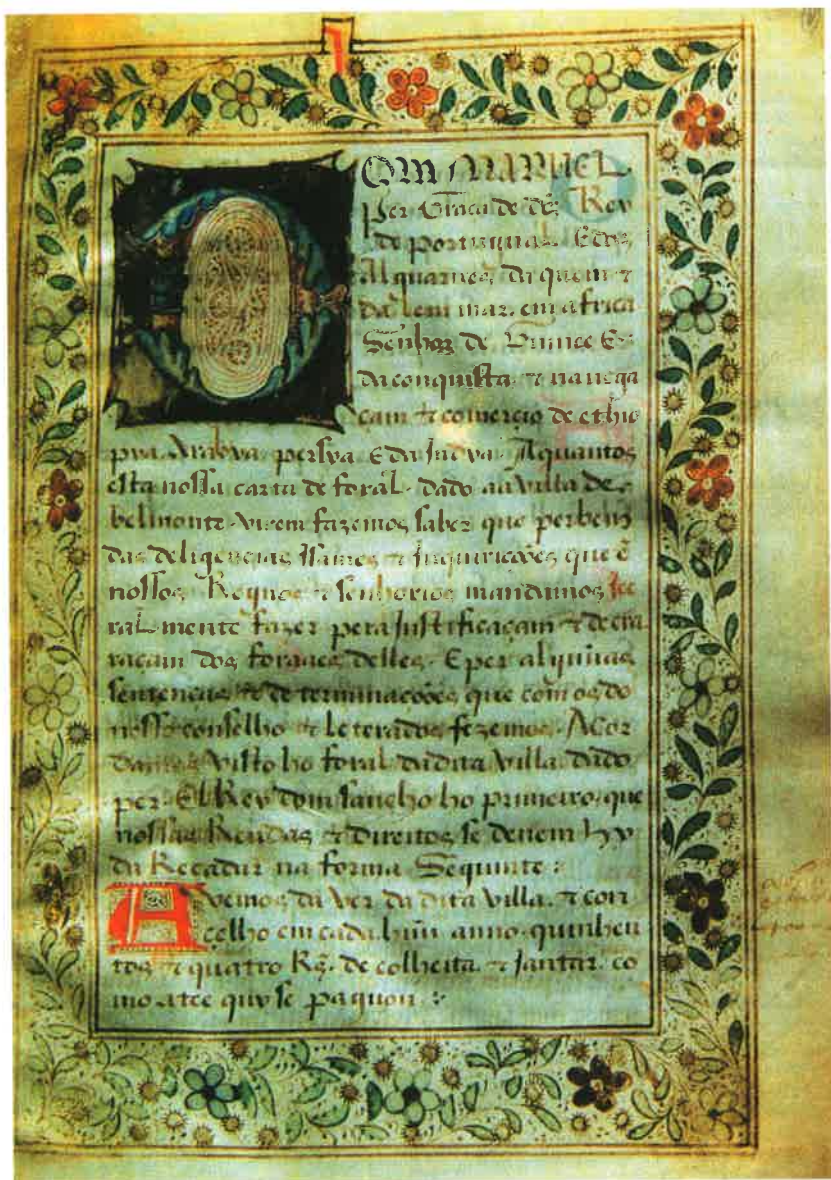 I
DOM MANUEL
per Graca de ds Rey
de portugual. E dos
Alguarues da quem τ
da lem mar. em africa
Senhor de Guinee E
da conquista τ nauega
cam τ comercio de ethio
pya Arabya persya E da Indya. A quantos
esta nossa carta de foral. dado aa villa de
belmonte. virem fazemos saber que per bem
das deligencias Isames τ Inquiricões que ẽ
nossos Regnos τ senhorios mandamos Ge
ral mente fazer pera Justificaçam τ decra
racam dos foraaes delles. E per alguũas
sentencas τ de terminacões que com os do
nosso conselho τ leterados fezemos. Acor
damos visto ho foral da dita villa dado
per El Rey dom sancho ho primeiro. que
nossas Rendas τ direitos se deuem hy
da Recadar na forma Seguinte :
Avemos da ver da dita villa. τ con
celho em cada huũ anno. quinhen
tos τ quatro Rs. de colheita τ Jantar. co
mo atee quy se paguou :